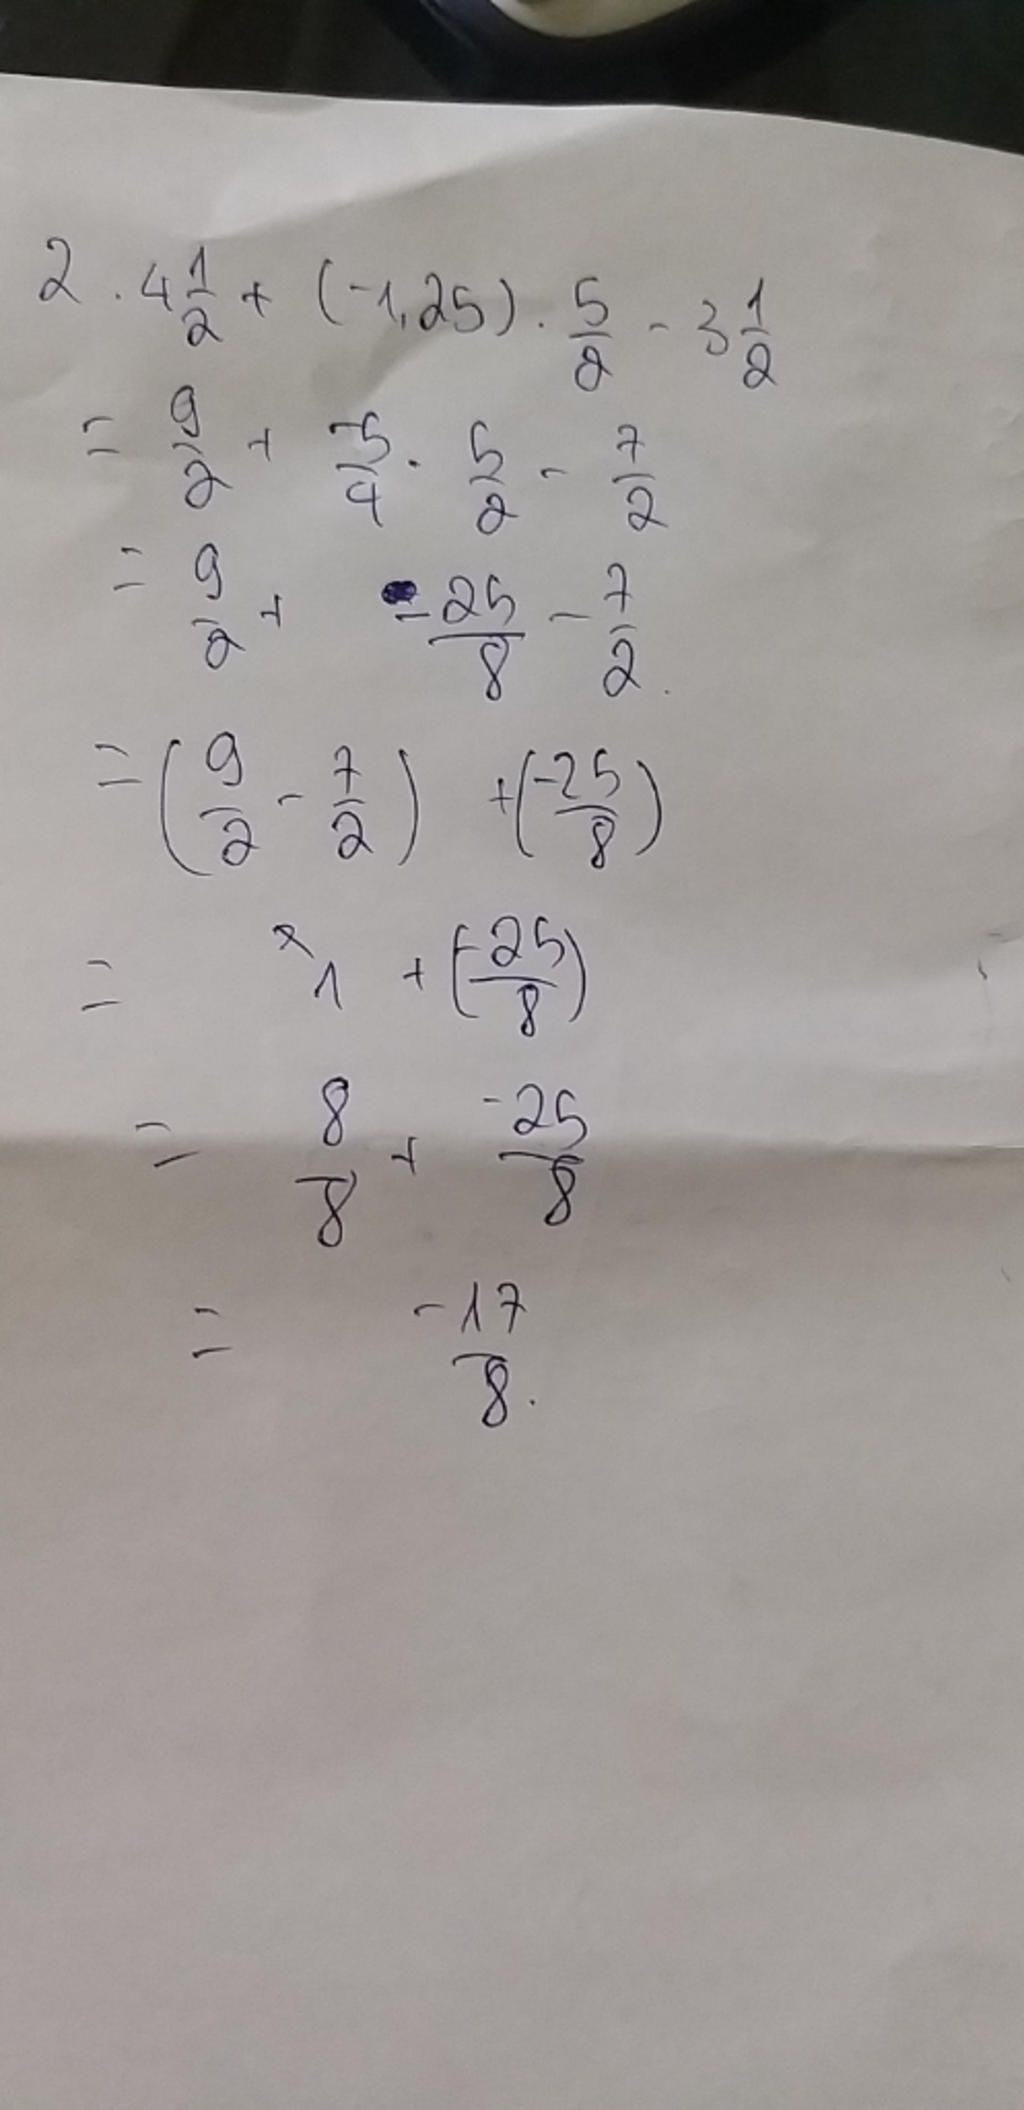 2. 4 1/2 + (-1,25) . 5/2 - 3 1/2
= 9/2 + -5/4 . 5/2 - 7/2
= 9/2 + -25/8 - 7/2.
= (9/2 - 7/2) + (-25/8)
= 1 + (-25/8)
= 8/8 + -25/8
= -17/8.